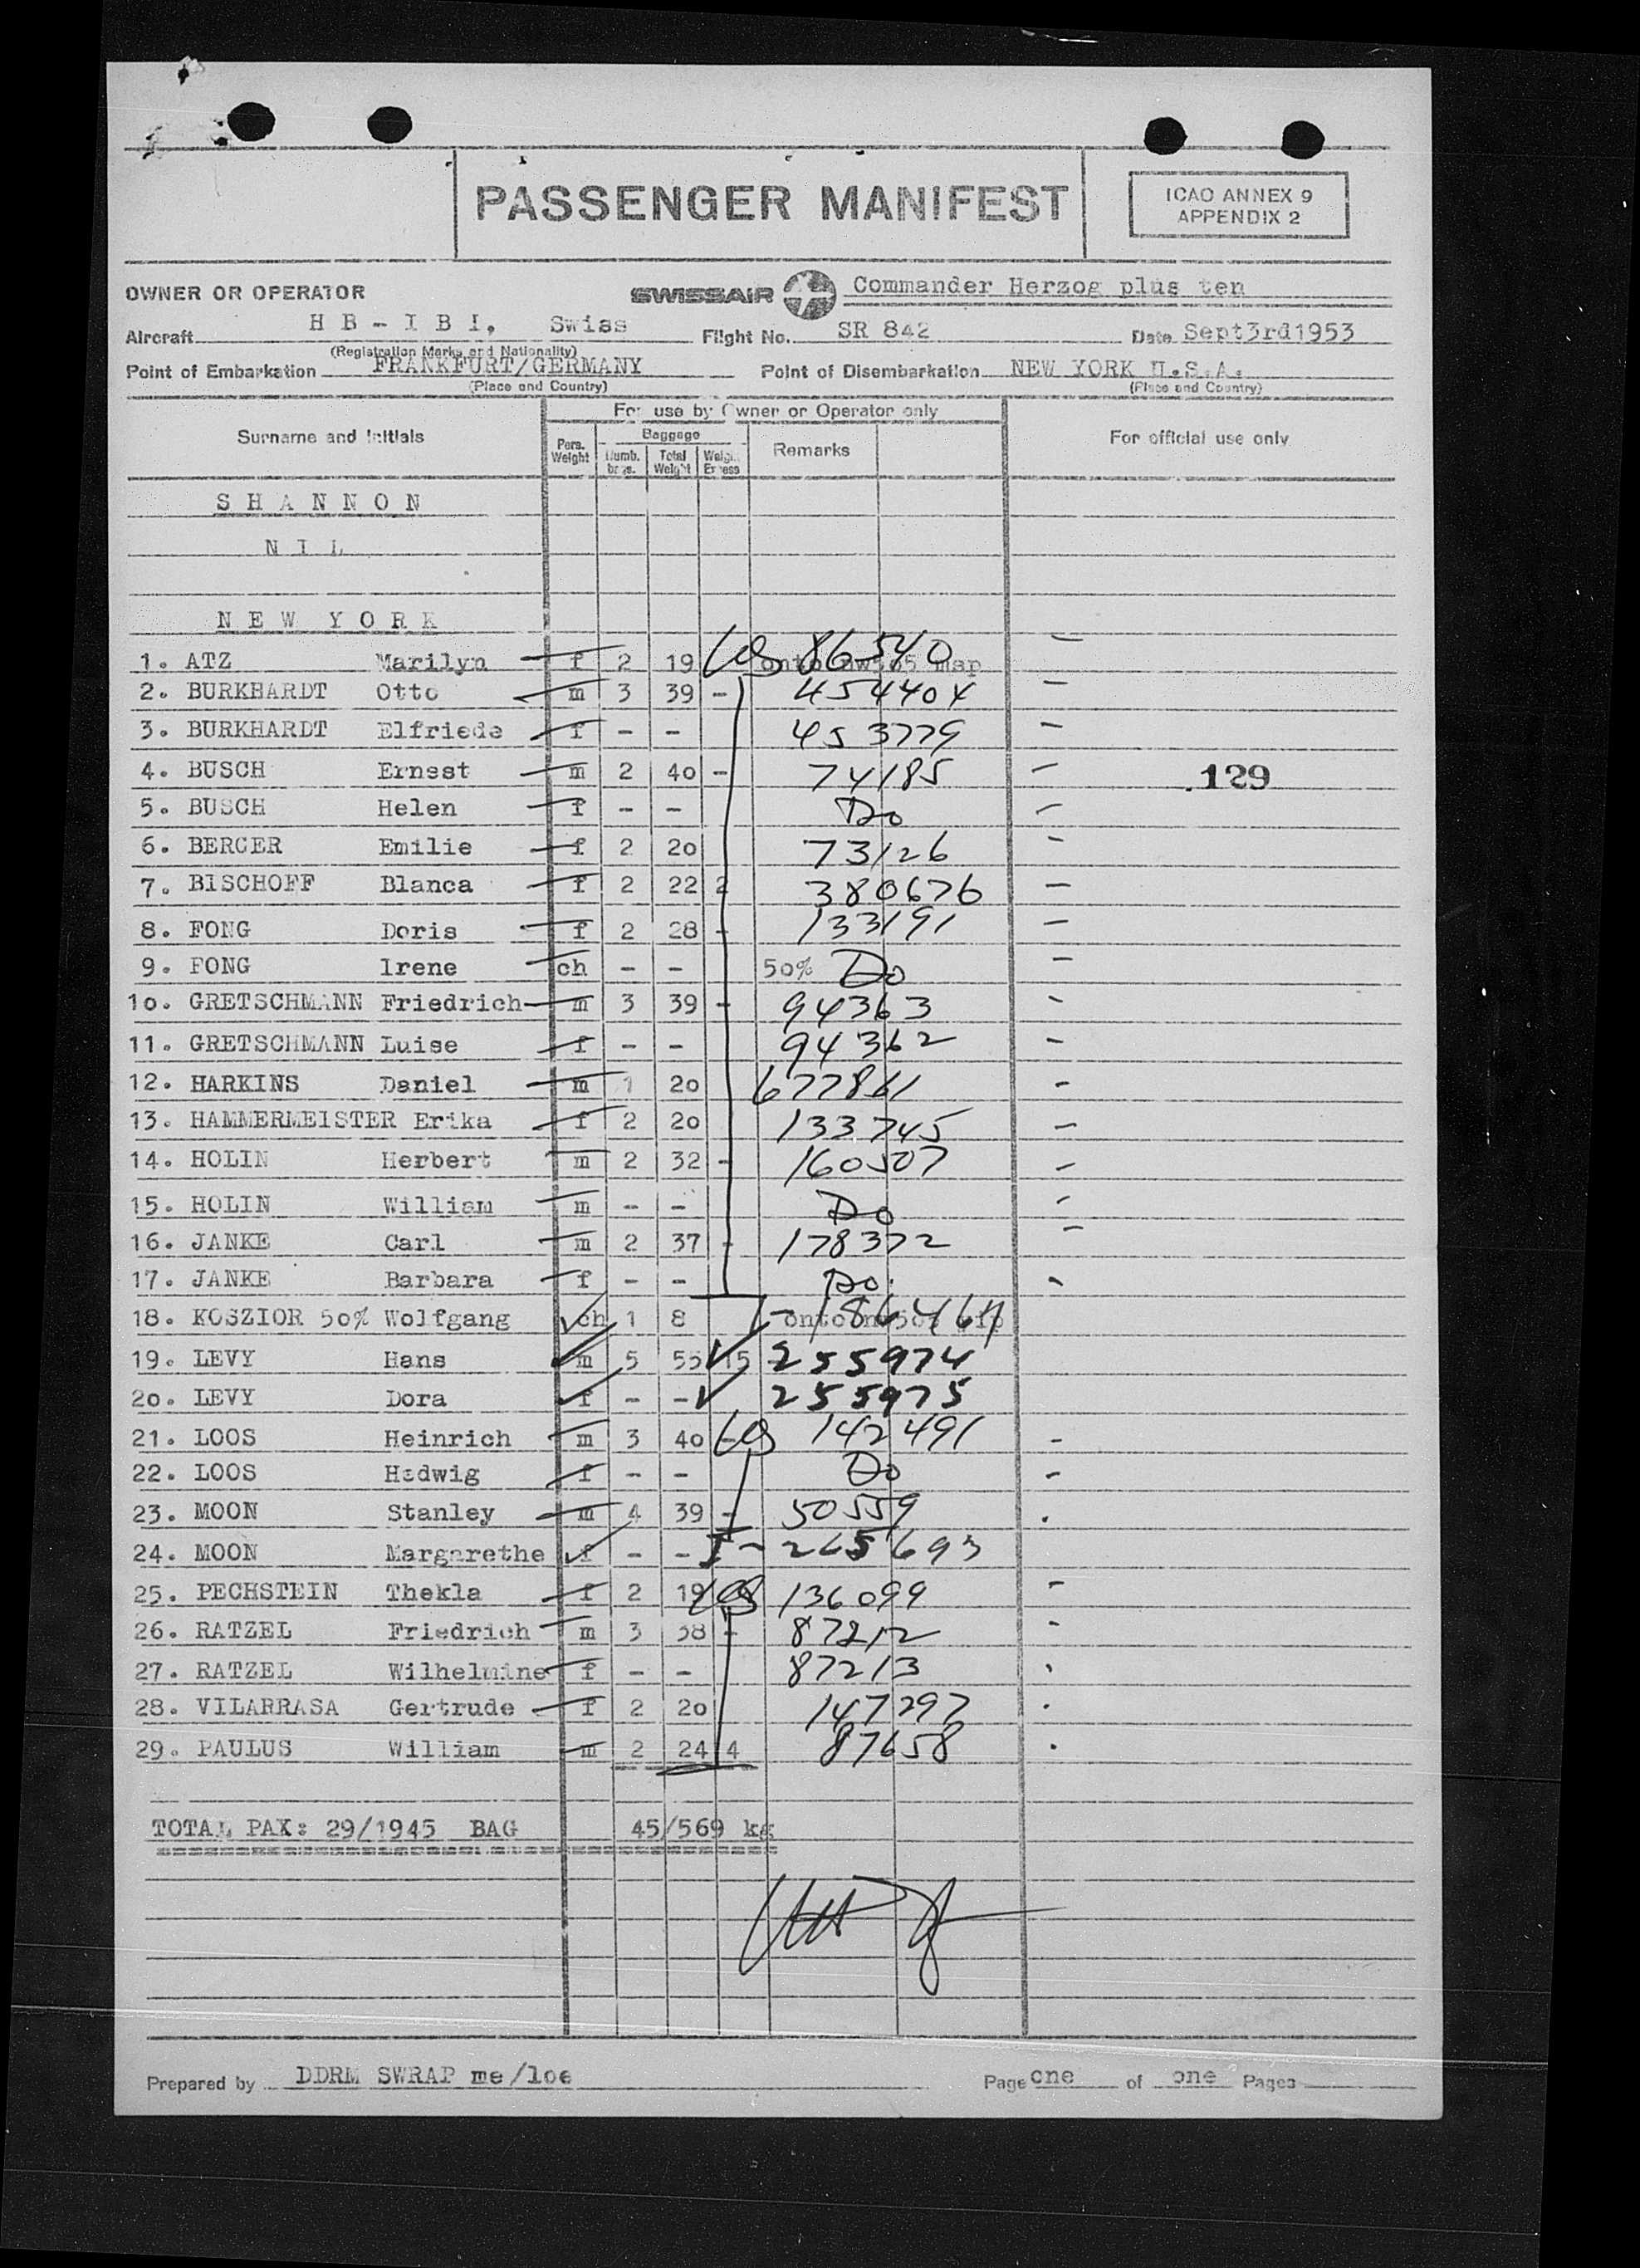 PASSENGER MANIFEST
ICAO ANNEX 9
APPENDIX 2
OWNER OR OPERATOR SWISSAIR Commander Herzog plus ten
Aircraft H B - I B I, Swiss Flight No. SR 842 Date Sept3rd1953
(Registration Marks and Nationality)
Point of Embarkation FRANKFURT/GERMANY Point of Disembarkation NEW YORK U.S.A.
(Place and Country) (Place and Country)
For use by Owner or Operator only
Surname and Initials Pers. Weight Baggage Numb. bags. Total Weight Weight Excess Remarks For official use only
S H A N N O N
N I L
N E W Y O R K
1. ATZ Marilyn f 2 19 US 86540 onto nw505 msp -
2. BURKHARDT Otto m 3 39 - 454404 -
3. BURKHARDT Elfriede f - - 453779 -
4. BUSCH Ernest m 2 40 - 74185 - 129
5. BUSCH Helen f - - Do -
6. BERGER Emilie f 2 20 73126 -
7. BISCHOFF Blanca f 2 22 2 380676 -
8. FONG Doris f 2 28 - 133191 -
9. FONG Irene ch - - 50% Do -
10. GRETSCHMANN Friedrich m 3 39 - 94363 -
11. GRETSCHMANN Luise f - - 94362 -
12. HARKINS Daniel m 1 20 677861 -
13. HAMMERMEISTER Erika f 2 20 133745 -
14. HOLIN Herbert m 2 32 - 160507 -
15. HOLIN William m - - Do -
16. JANKE Carl m 2 37 - 178372 -
17. JANKE Barbara f - - Do -
18. KOSZIOR 50% Wolfgang ch 1 8 onto
19. LEVY Hans m 5 55 15 255974
20. LEVY Dora f - - 255975
21. LOOS Heinrich m 3 40 - US 142491 -
22. LOOS Hedwig f - - Do -
23. MOON Stanley m 4 39 - 50559 .
24. MOON Margarethe f - - I - 265693
25. PECHSTEIN Thekla f 2 19 US 136099 -
26. RATZEL Friedrich m 3 38 - 87212 -
27. RATZEL Wilhelmine f - - 87213
28. VILARRASA Gertrude f 2 20 147297 .
29. PAULUS William m 2 24 4 87658 .
TOTAL PAX: 29/1945 BAG 45/569 kg
Prepared by DDRM SWRAP me/loe Page one of one Pages